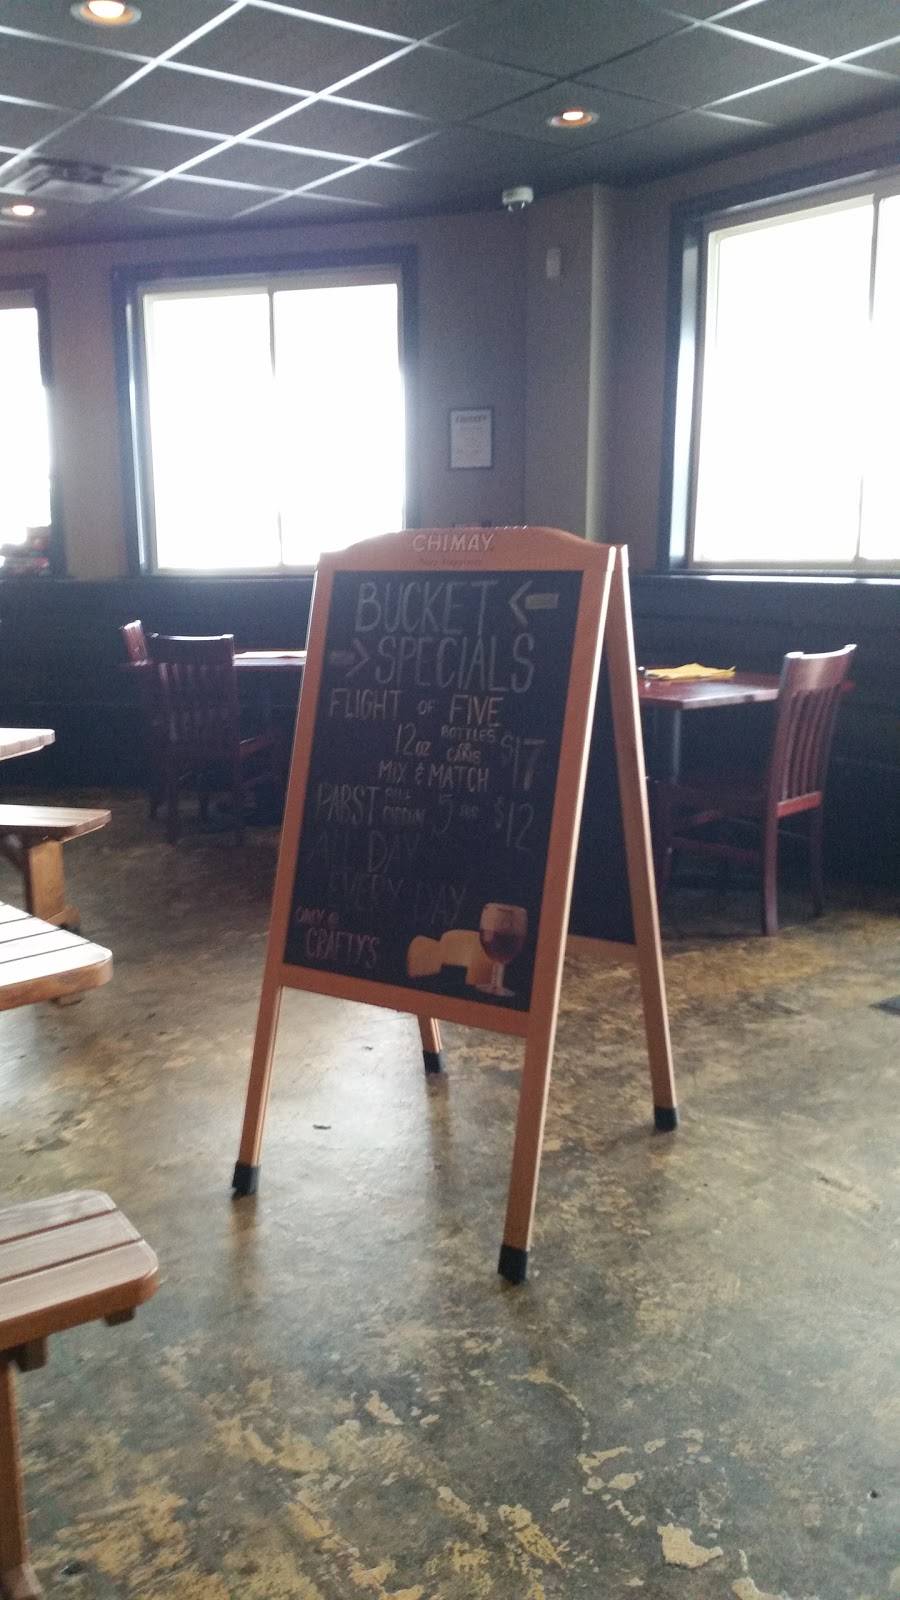 CHIMAY
BUCKET
SPECIALS
FLIGHT OF FIVE
12oz BOTTLES OR CANS $17
MIX & MATCH
PABST BLUE RIBBON 5 FOR $12
ALL DAY
EVERY DAY
ONLY @
CRAFTY'S